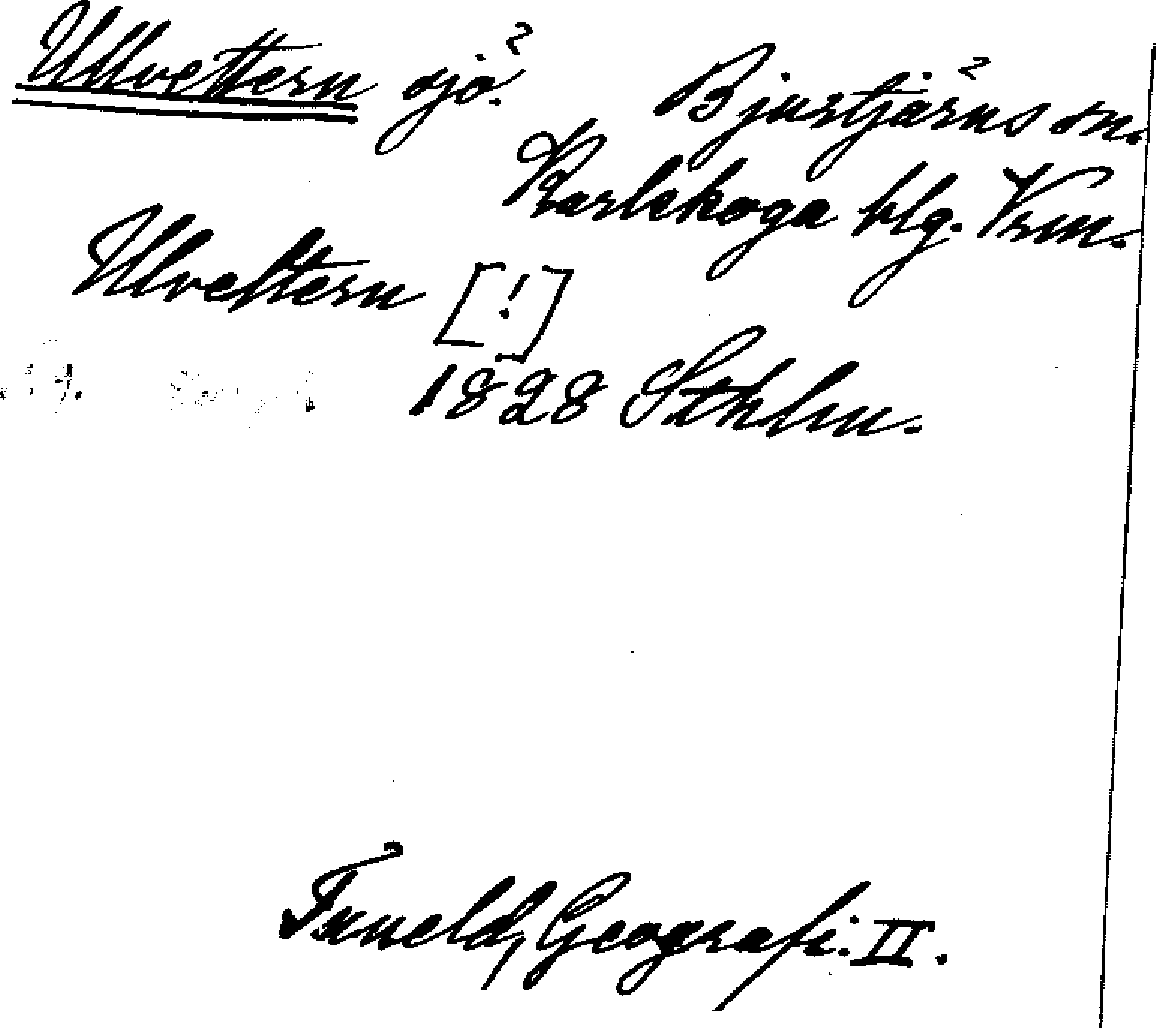 Ullvettern sjö. Bjurtjärns sn.
Karlskoga blg. Vrm.
Ulvettern [!]
1828 Sthlm.
Tuneld, Geografi. II.